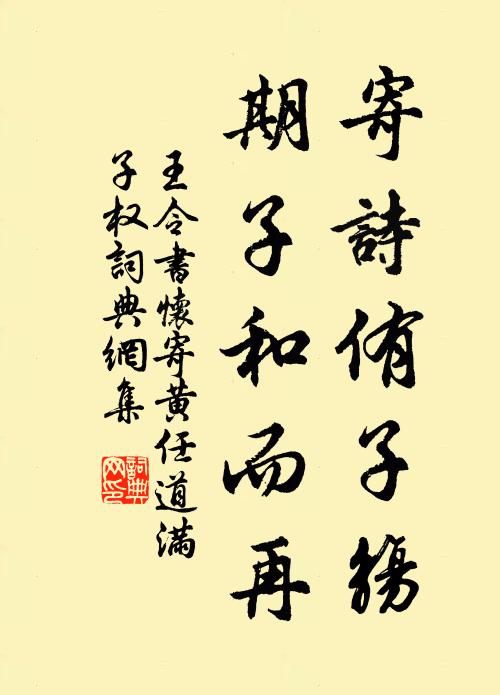 寄詩侑子觴
期子和而再
王令書懷寄黃任道滿
子权詞典網集
詞典网印